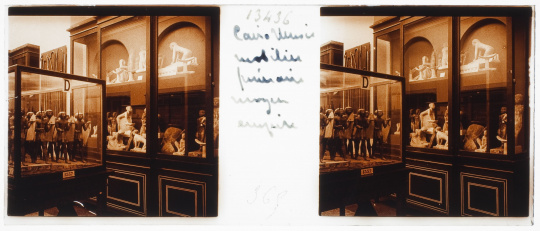 13436
Caire Musée
mobilier
funéraire
moyen
empire
369
D
D